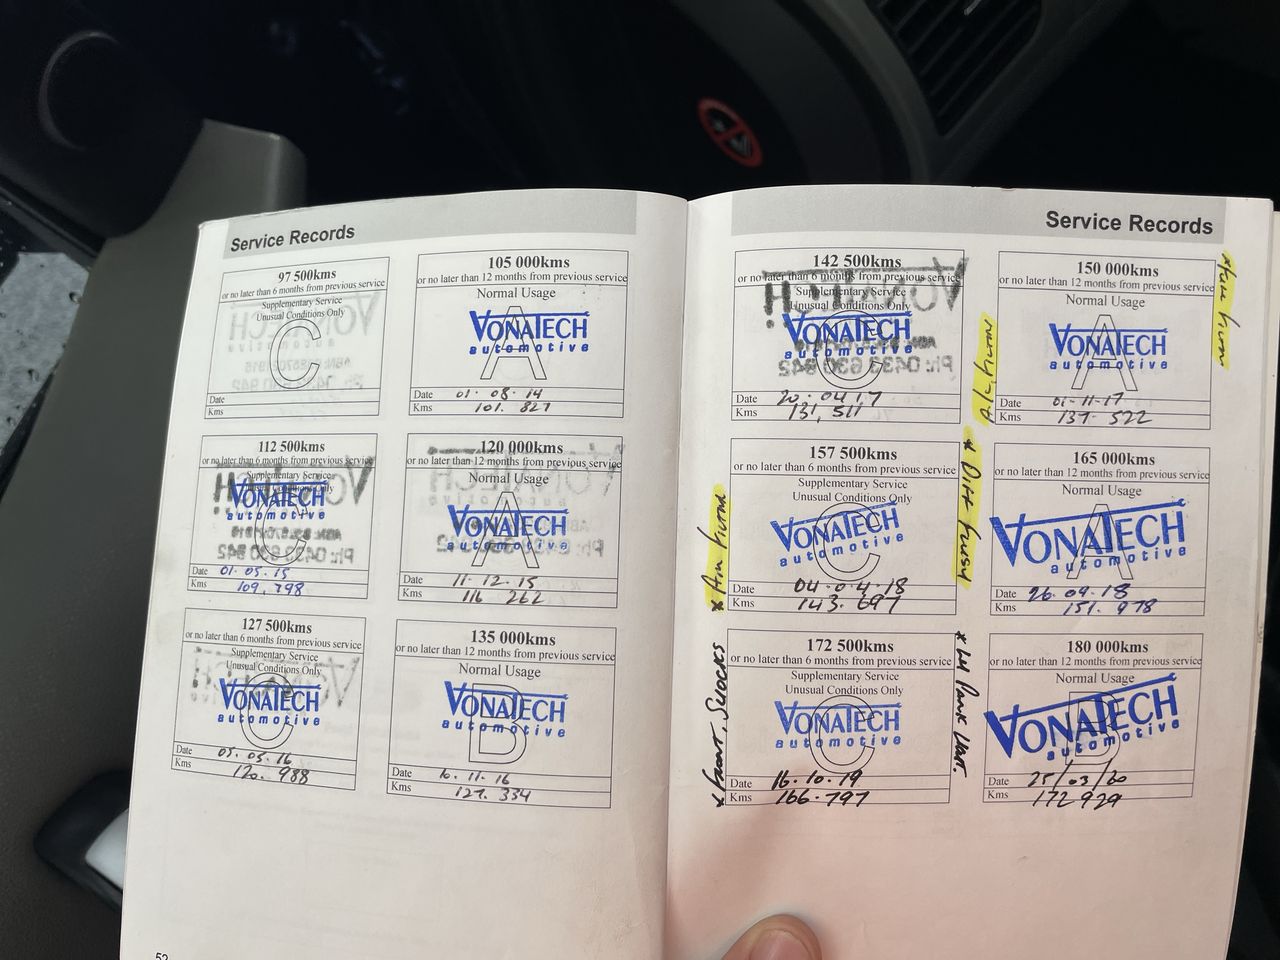 Service Records
97 500kms
or no later than 6 months from previous service
Supplementary Service
Unusual Conditions Only
C
Date
Kms
105 000kms
or no later than 12 months from previous service
Normal Usage
A
VONATECH
automotive
Date 01·08·14
Kms 101. 827
112 500kms
or no later than 6 months from previous service
Supplementary Service
Unusual Conditions Only
C
VONATECH
automotive
Date 01·05·15
Kms 109,798
120 000kms
or no later than 12 months from previous service
Normal Usage
A
VONATECH
automotive
Date 11·12·15
Kms 116 262
127 500kms
or no later than 6 months from previous service
Supplementary Service
Unusual Conditions Only
C
VONATECH
automotive
Date 05·05·16
Kms 120. 988
135 000kms
or no later than 12 months from previous service
Normal Usage
B
VONATECH
automotive
Date 11·16
Kms 127. 334
52
Service Records
142 500kms
or no later than 6 months from previous service
Supplementary Service
Unusual Conditions Only
C
VONATECH
automotive
Date 20·04 17
Kms 131, 511
150 000kms
or no later than 12 months from previous service
Normal Usage
A
VONATECH
automotive
Date 01-11-17
Kms 137- 522
157 500kms
or no later than 6 months from previous service
Supplementary Service
Unusual Conditions Only
C
VONATECH
automotive
Date 04·04·18
Kms 143. 697
165 000kms
or no later than 12 months from previous service
Normal Usage
A
VONATECH
automotive
Date 26·09·18
Kms 151. 978
172 500kms
or no later than 6 months from previous service
Supplementary Service
Unusual Conditions Only
C
VONATECH
automotive
Date 16·10·19
Kms 166·797
180 000kms
or no later than 12 months from previous service
Normal Usage
B
VONATECH
automotive
Date 25/03/20
Kms 172929
* Diff
* Front, Shocks